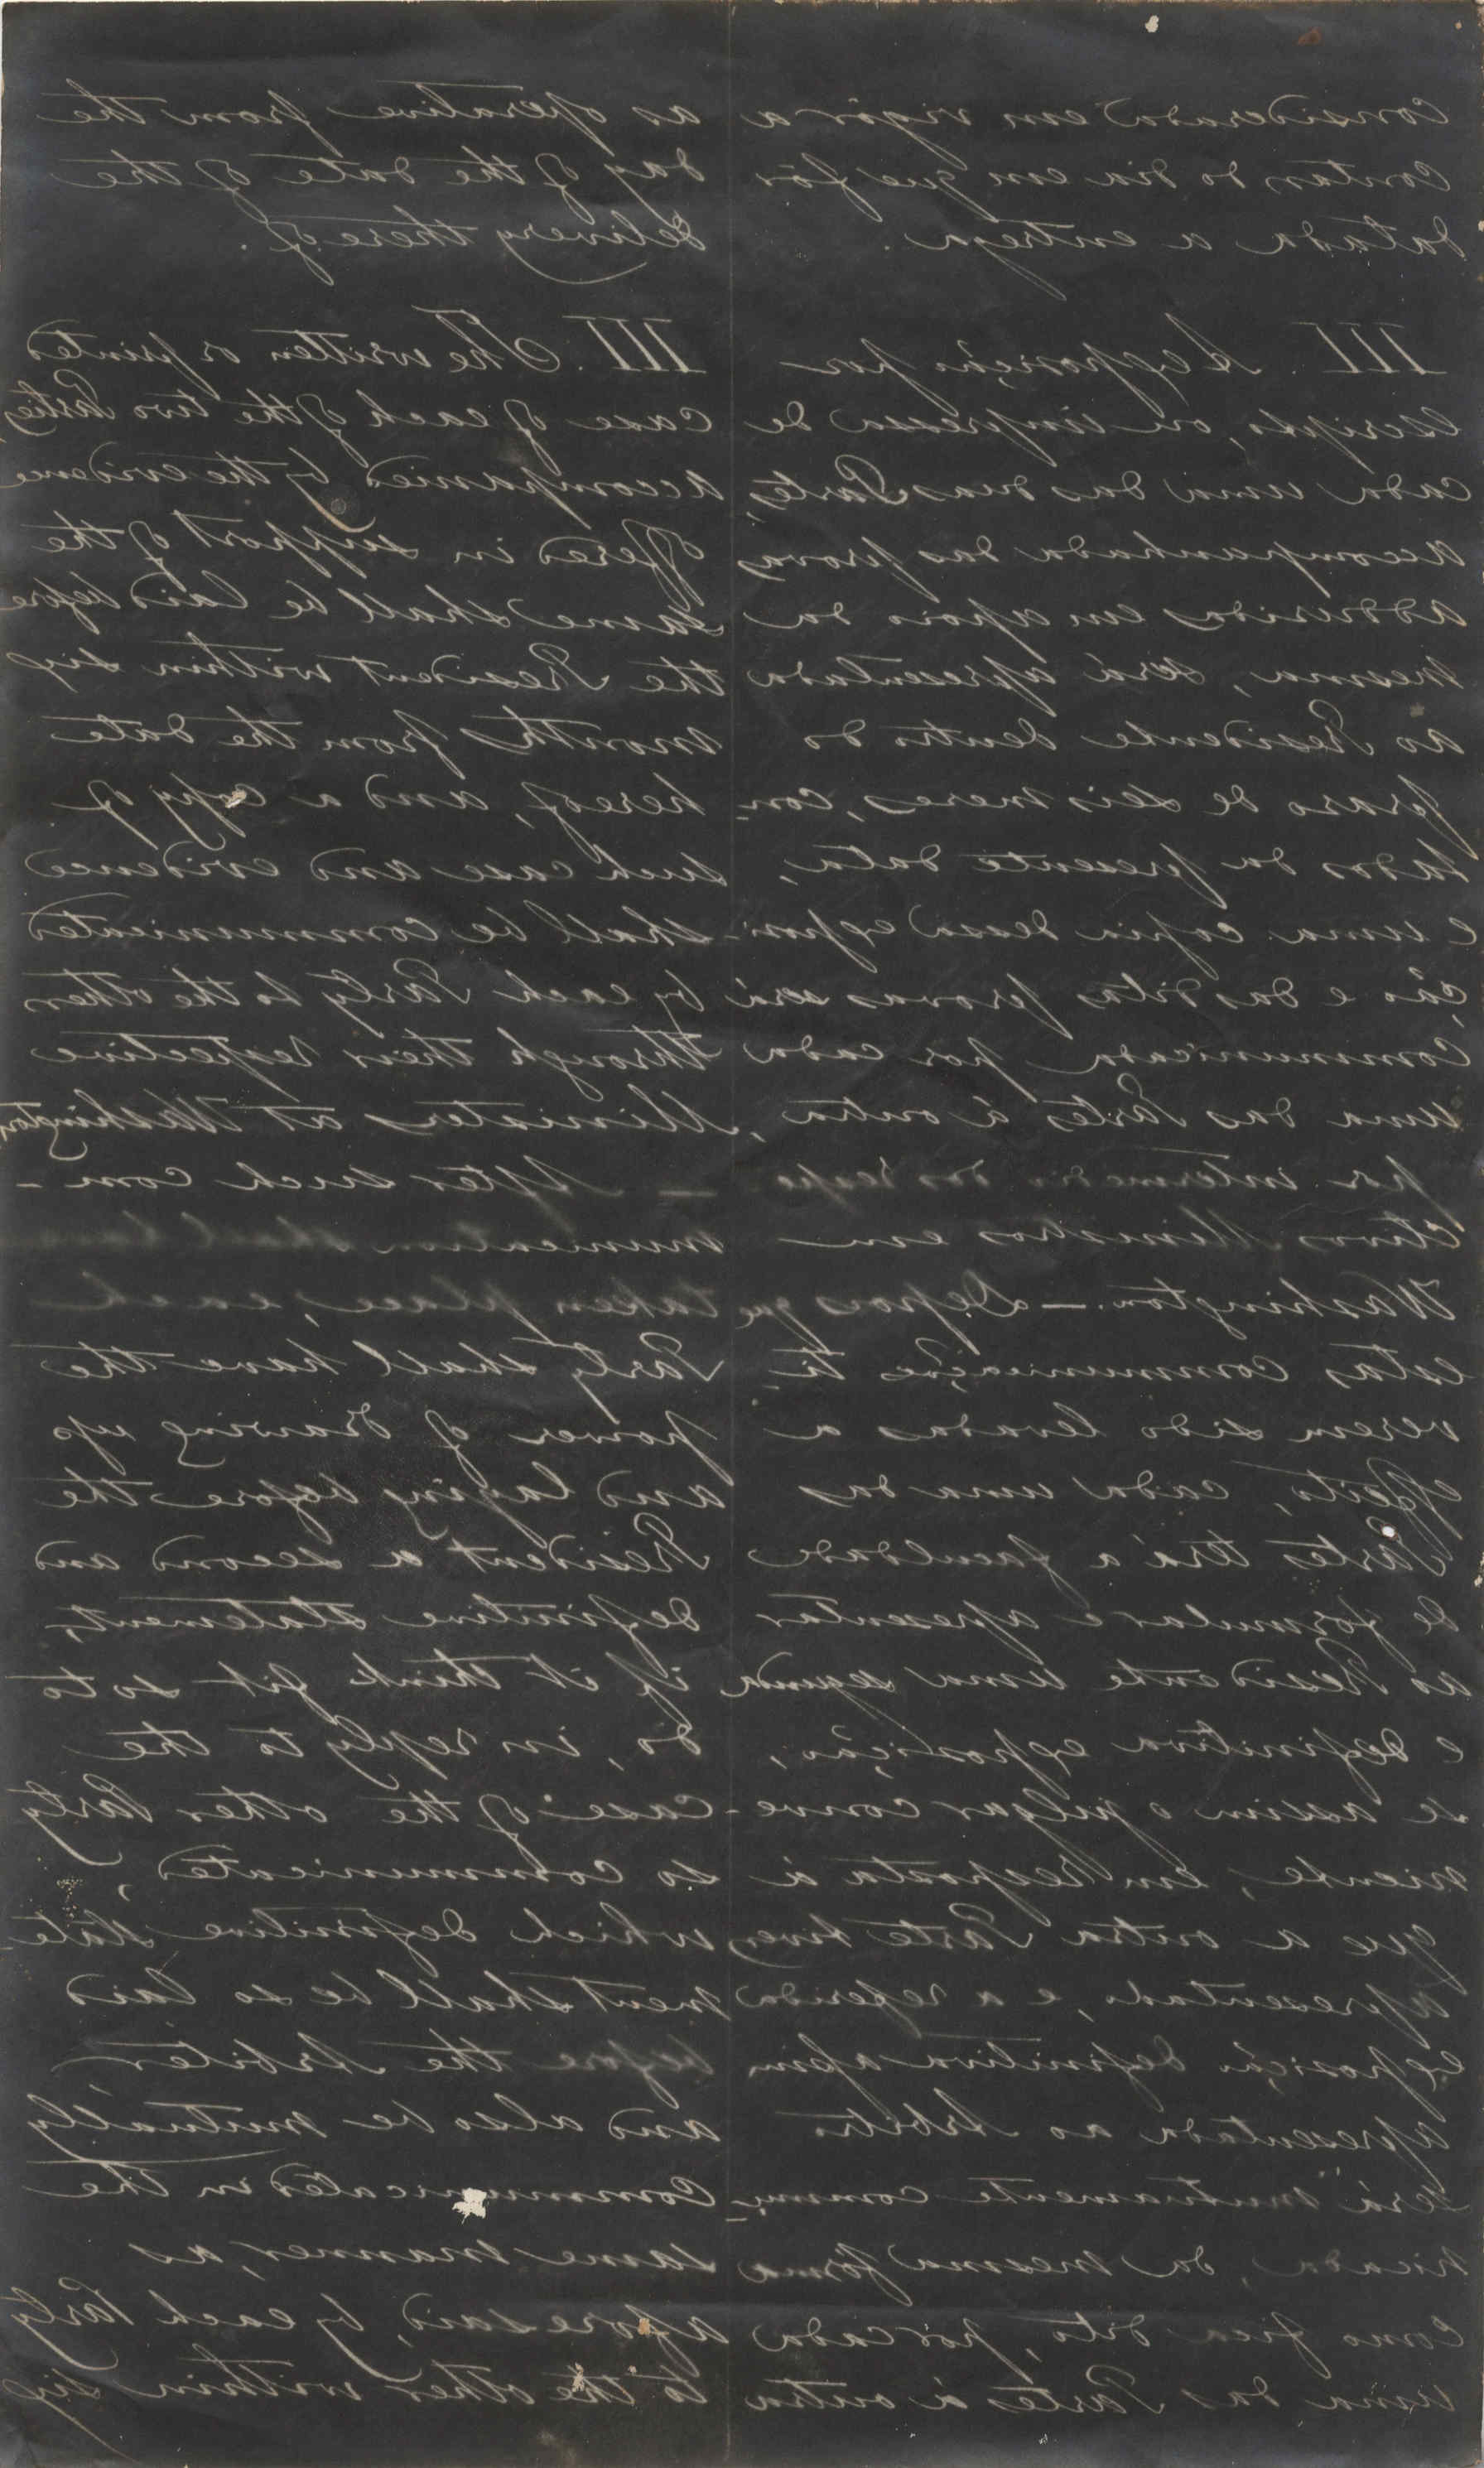 Considerada em vigôr a
contar do dia em que fôr
datada a entrega.
III. A exposição por
escripto, ou impressa de
cada uma das duas Partes,
accompanhada das provas
adduzidas em apoio da
mesma, será apresentada
ao Presidente dentro do
praso de seis mezes, con-
tados da presente data,
e uma copia dessa exposi-
ção e das ditas provas será
communicada por cada
uma das Partes á outra,
por intermedio dos respe
ctivos Ministros em
Washington. — Depois que
estas communicações ti-
verem sido levadas a
effeito, cada uma das
Partes terá a faculdade
de formular e apresentar
ao Presidente uma segunda
e definitiva exposição,
se assim o julgar conve-
niente, em resposta á
que a outra Parte tiver
apresentado, e a referida
exposição definitiva assim
apresentada ao Arbitro
será mutuamente commu-
nicada, da mesma forma
como fica dito, por cada
uma das Partes á outra
as operative from the
day of the date of the
delivery thereof.
III. The written or printed
case of each of the two Parties,
accompanied by the evidence
offered in support of the
same shall be laid before
the President within six
months from the date
hereof, and a copy of
such case and evidence
shall be communicated
by each Party to the other
through their respective
Ministers at Washington
— After such com-
munication shall have
taken place, each
Party shall have the
power of drawing up
and laying before the
President a second and
definitive statement,
if it think fit so to
do, in reply to the
case of the other Party
so communicated,
which definitive state
ment shall be so laid
before the Arbiter
and also be mutually
communicated in the
same manner, as
aforesaid, by each Party
to the other within six